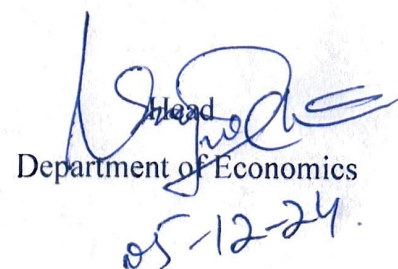 Head
Department of Economics
05-12-24.